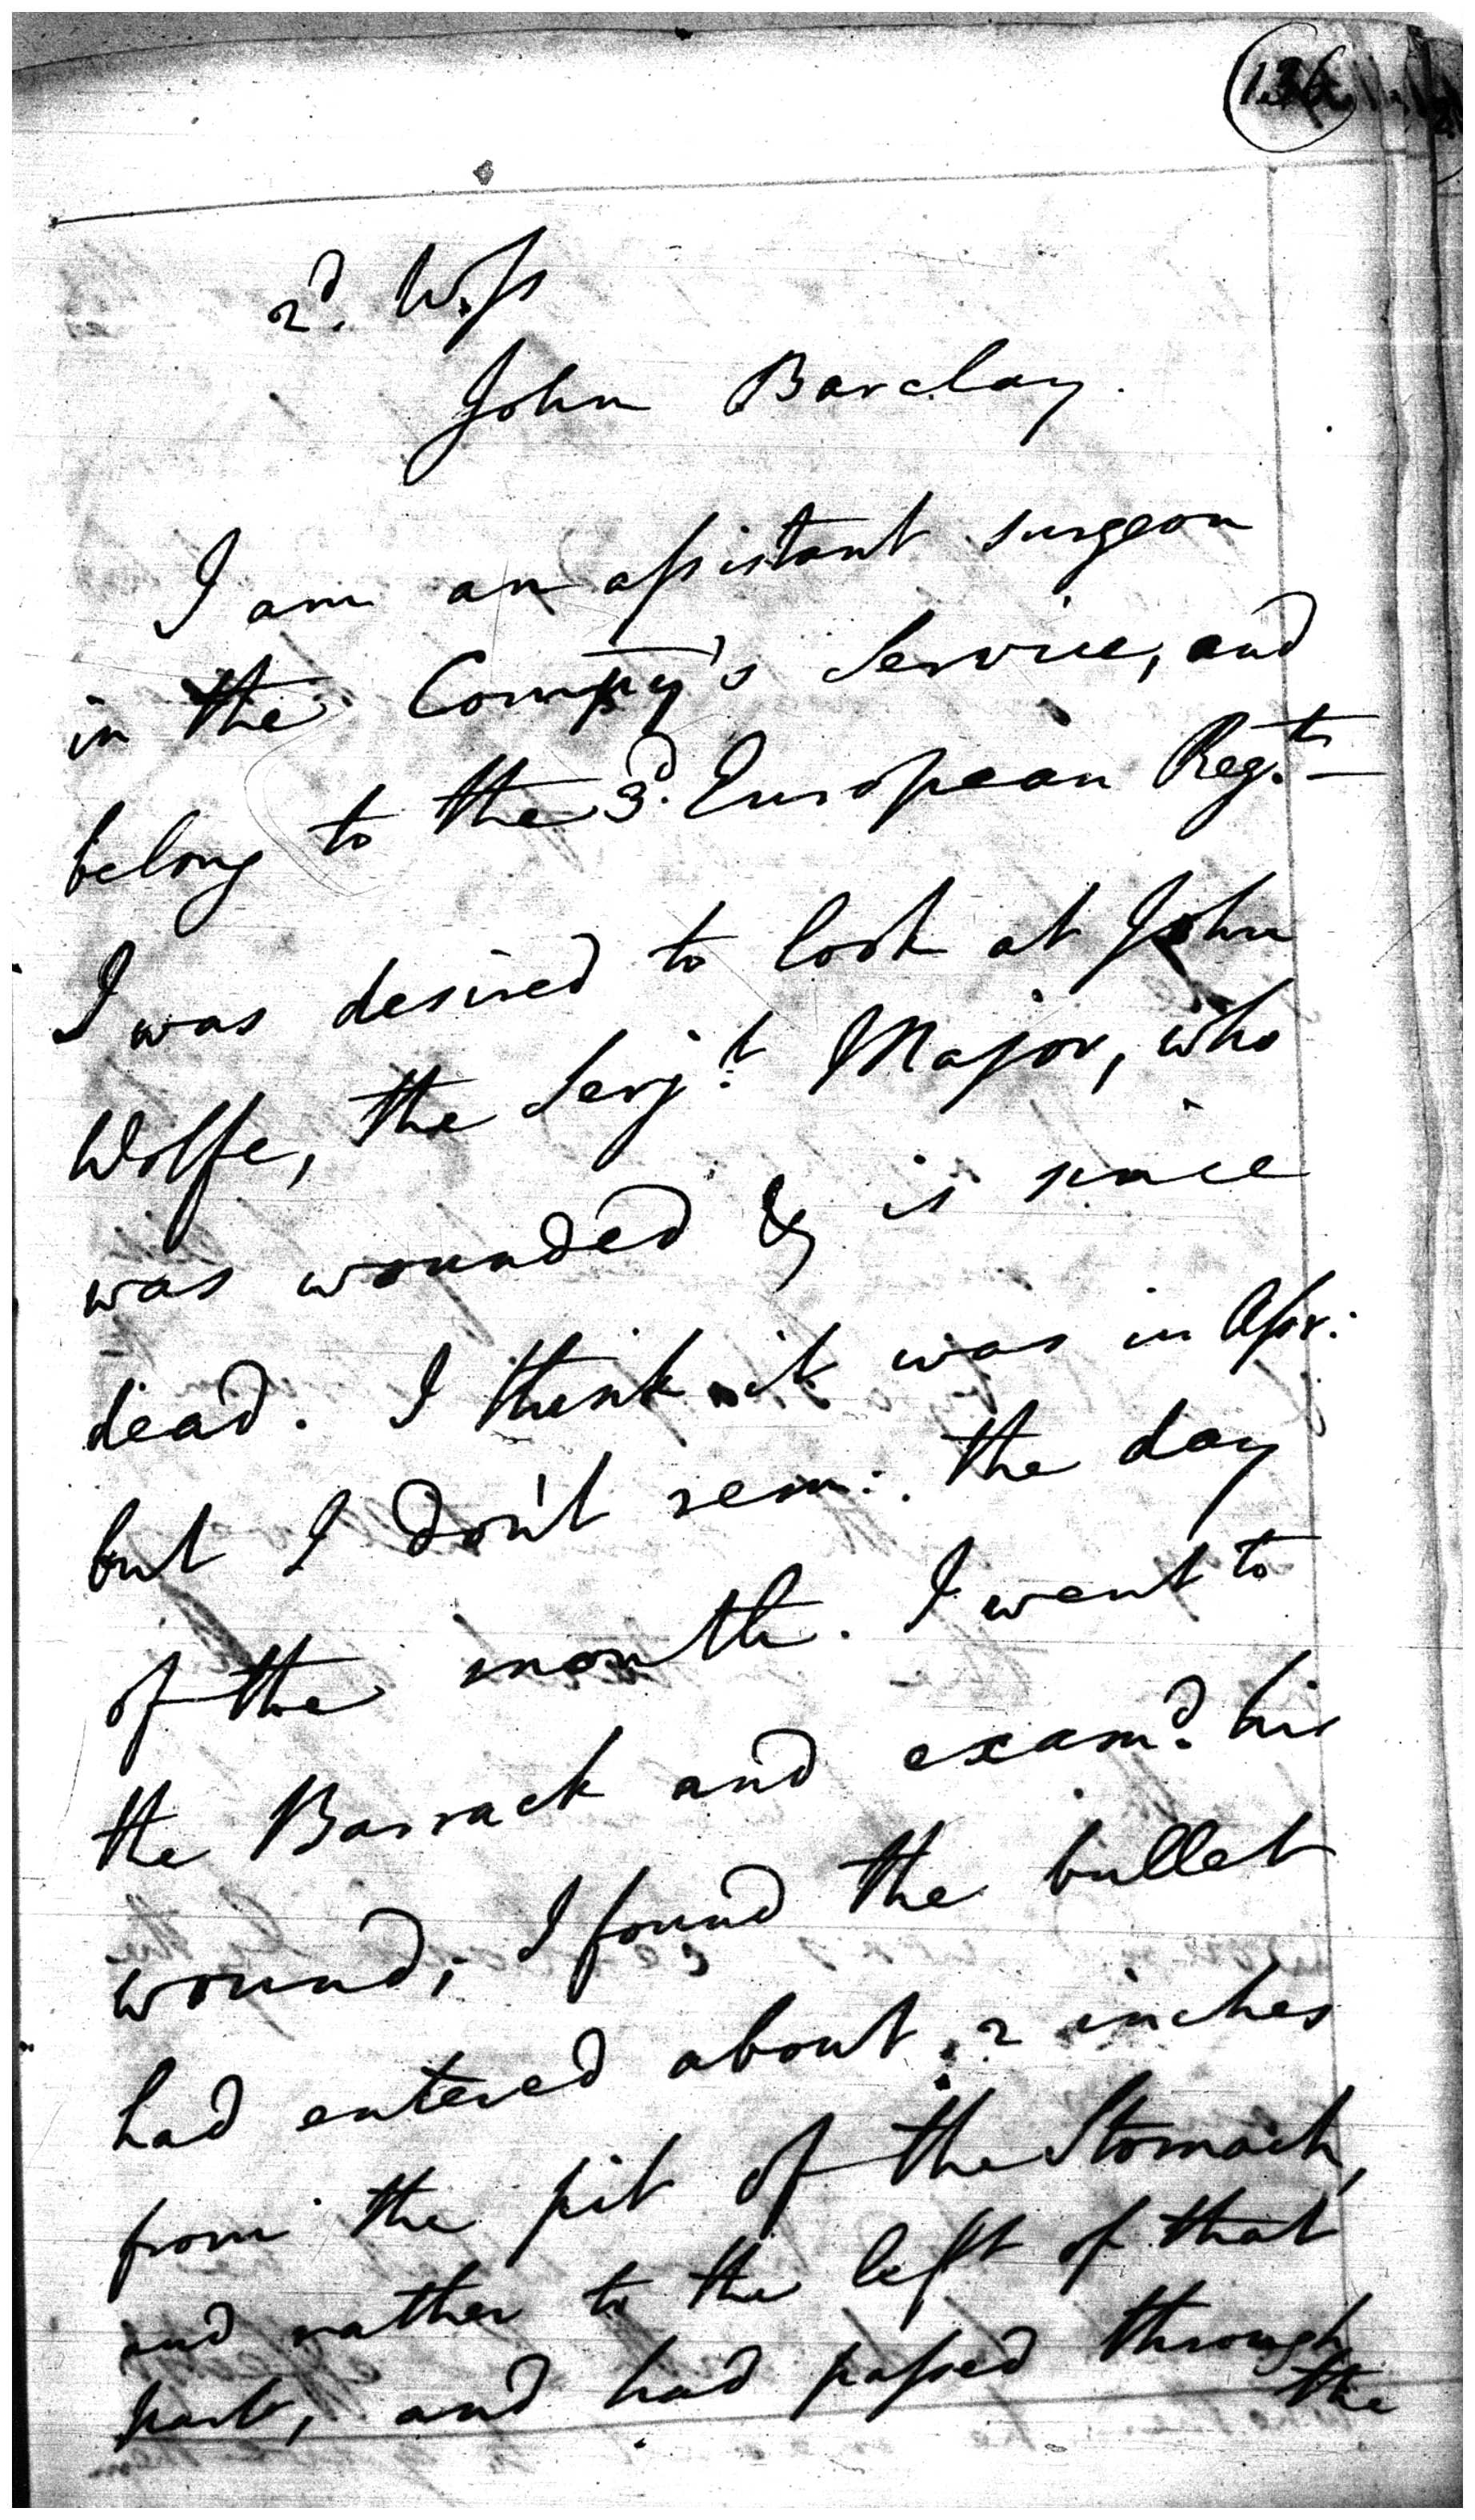 2d. Wss
John Barclay.
I am an assistant surgeon
in the Compy's Service, and
belong to the 3d. European Regt. —
I was desired to look at John
Wolfe, the Serjt. Major, who
was wounded & is since
dead. I think it was in Apr:
but I don't rem: the day
of the month. I went to
the Barrack and examd. his
wound; I found the bullet
had entered about 2 inches
from the pit of the Stomach,
and rather to the left of that
part, and had passed through
the